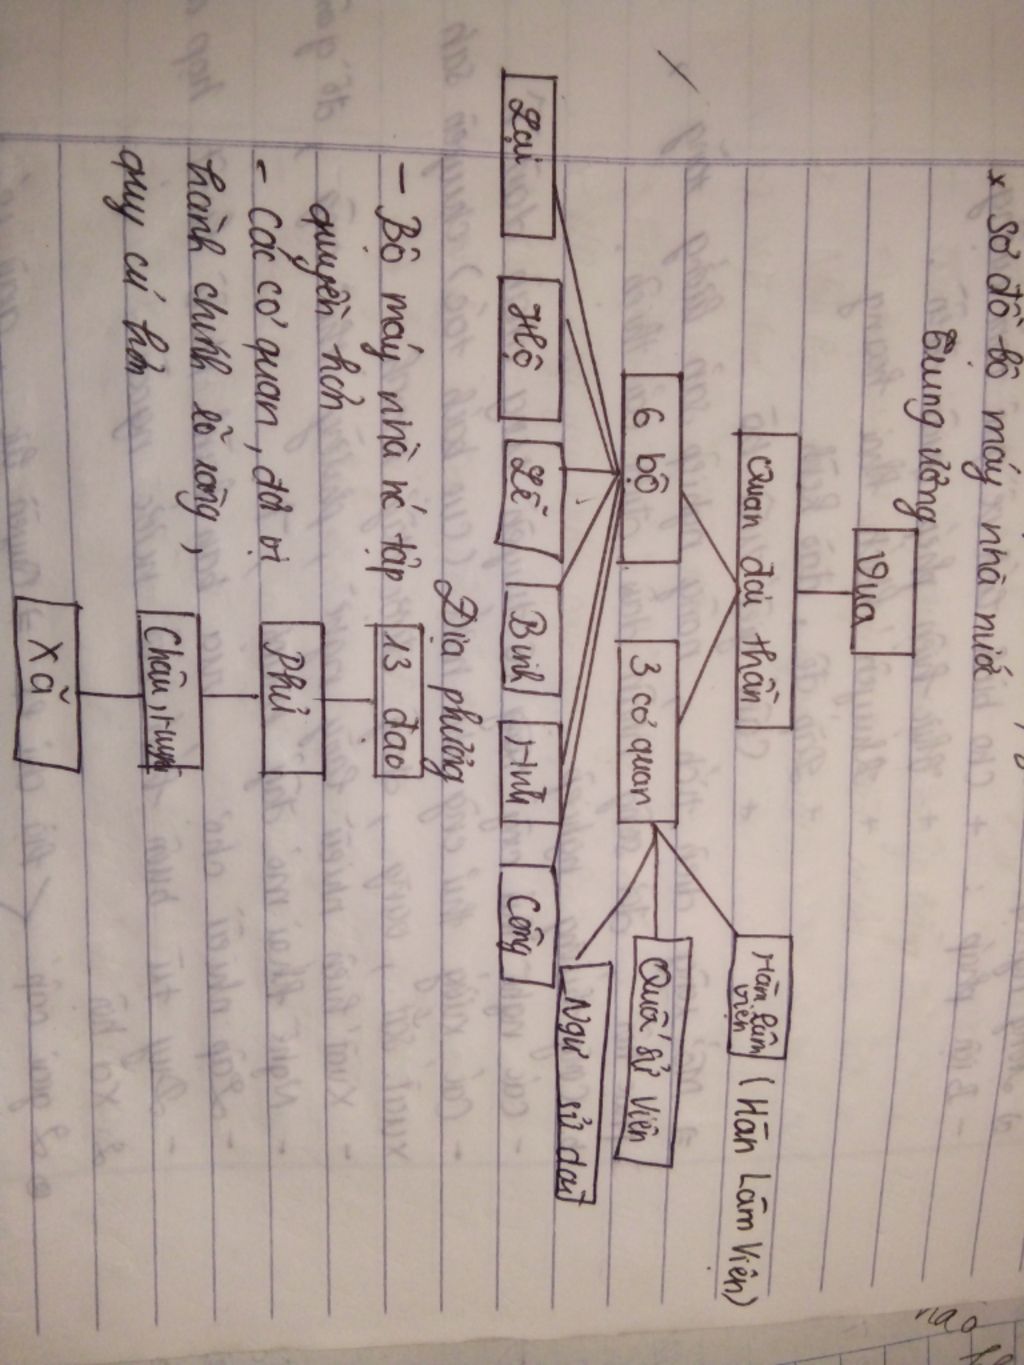 * Sơ đồ bộ máy nhà nước
Trung ương
Vua
Quan đại thần
6 bộ
3 cơ quan
Hàn Lâm
viện
(Hàn Lâm Viện)
Quấ sử Viện
Ngự sử đài
Lại
Hộ
Lễ
Binh
Hình
Công
Địa phương
13 đạo
Phủ
Châu, Huyện
Xã
- Bộ máy nhà nc tập
quyền hơn
- Các cơ quan, đơn vị
hành chính rõ ràng,
quy củ hơn